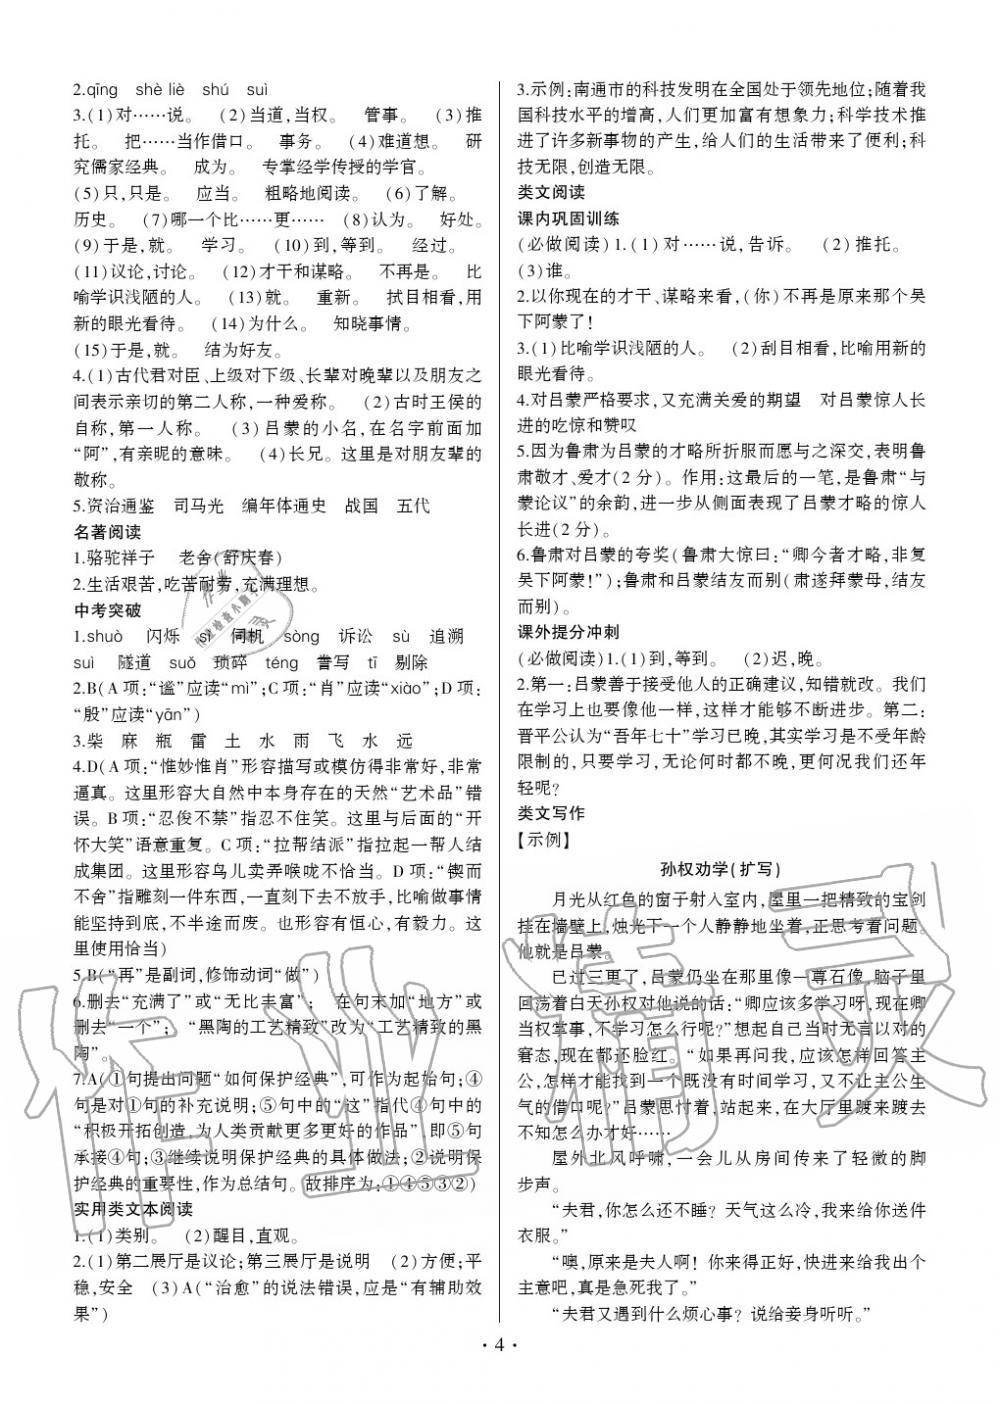 2.qīng　shè liè　shú　suì
3.(1)对……说。　(2)当道,当权。　管事。　(3)推
托。　把……当作借口。　事务。　(4)难道想。　研
究儒家经典。　成为。　专掌经学传授的学官。
(5)只,只是。　应当。　粗略地阅读。　(6)了解。
历史。　(7)哪一个比……更……　(8)认为。　好处。
(9)于是,就。　学习。　(10)到,等到。　经过。
(11)议论,讨论。　(12)才干和谋略。　不再是。　比
喻学识浅陋的人。　(13)就。　重新。　拭目相看,用
新的眼光看待。　(14)为什么。　知晓事情。
(15)于是,就。　结为好友。
4.(1)古代君对臣、上级对下级、长辈对晚辈以及朋友之
间表示亲切的第二人称,一种爱称。　(2)古时王侯的
自称,第一人称。　(3)吕蒙的小名,在名字前面加
“阿”,有亲昵的意味。　(4)长兄。这里是对朋友辈的
敬称。
5.资治通鉴　司马光　编年体通史　战国　五代
名著阅读
1.骆驼祥子　老舍(舒庆春)
2.生活艰苦,吃苦耐劳,充满理想。
中考突破
1.shuò　闪烁　sì　伺机　sòng　诉讼　sù　追溯
suì　隧道　suǒ　琐碎　téng　誊写　tī　剔除
2.B(A项:“谧”应读“mì”;C项:“肖”应读“xiào”;D项:
“殷”应读“yān”)
3.柴　麻　瓶　雷　土　水　雨　飞　水　远
4.D(A项:“惟妙惟肖”形容描写或模仿得非常好,非常
逼真。这里形容大自然中本身存在的天然“艺术品”错
误。B项:“忍俊不禁”指忍不住笑。这里与后面的“开
怀大笑”语意重复。C项:“拉帮结派”指拉起一帮人结
成集团。这里形容鸟儿卖弄喉咙不恰当。D项:“锲而
不舍”指雕刻一件东西,一直刻下去不放手,比喻做事情
能坚持到底,不半途而废。也形容有恒心,有毅力。这
里使用恰当)
5.B(“再”是副词,修饰动词“做”)
6.删去“充满了”或“无比丰富”;　在句末加“地方”或
删去“一个”;　“黑陶的工艺精致”改为“工艺精致的黑
陶”。
7.A(①句提出问题“如何保护经典”,可作为起始句;④
句是对①句的补充说明;⑤句中的“这”指代④句中的
“积极开拓创造,为人类贡献更多更好的作品”,即⑤句
承接④句;③继续说明保护经典的具体做法;②说明保
护经典的重要性,作为总结句。故排序为:①④⑤③②)
实用类文本阅读
1.(1)类别。　(2)醒目,直观。
2.(1)第二展厅是议论;第三展厅是说明　(2)方便;平
稳,安全　(3)A(“治愈”的说法错误,应是“有辅助效
果”)
3.示例:南通市的科技发明在全国处于领先地位;随着我
国科技水平的增高,人们更加富有想象力;科学技术推
进了许多新事物的产生,给人们的生活带来了便利;科
技无限,创造无限。
类文阅读
课内巩固训练
(必做阅读)1.(1)对……说,告诉。　(2)推托。
(3)谁。
2.以你现在的才干、谋略来看,(你)不再是原来那个吴
下阿蒙了!
3.(1)比喻学识浅陋的人。　(2)刮目相看,比喻用新的
眼光看待。
4.对吕蒙严格要求,又充满关爱的期望　对吕蒙惊人长
进的吃惊和赞叹
5.因为鲁肃为吕蒙的才略所折服而愿与之深交,表明鲁
肃敬才、爱才(2分)。作用:这最后的一笔,是鲁肃“与
蒙论议”的余韵,进一步从侧面表现了吕蒙才略的惊人
长进(2分)。
6.鲁肃对吕蒙的夸奖(鲁肃大惊曰:“卿今者才略,非复
吴下阿蒙!”);鲁肃和吕蒙结友而别(肃遂拜蒙母,结友
而别)。
课外提分冲刺
(必做阅读)1.(1)到,等到。　(2)迟,晚。
2.第一:吕蒙善于接受他人的正确建议,知错就改。我们
在学习上也要像他一样,这样才能够不断进步。第二:
晋平公认为“吾年七十”学习已晚,其实学习是不受年龄
限制的,只要学习,无论何时都不晚,更何况我们还年
轻呢?
类文写作
【示例】
孙权劝学(扩写)
月光从红色的窗子射入室内,屋里一把精致的宝剑
挂在墙壁上,烛光下一个人静静地坐着,正思考着问题。
他就是吕蒙。
已过三更了,吕蒙仍坐在那里像一尊石像,脑子里
回荡着白天孙权对他说的话:“卿应该多学习呀,现在卿
当权掌事,不学习怎么行呢?”想起自己当时无言以对的
窘态,现在都还脸红。“如果再问我,应该怎样回答主
公,怎样才能找到一个既没有时间学习,又不让主公生
气的借口呢?”吕蒙思忖着,站起来,在大厅里踱来踱去
不知怎么办才好……
屋外北风呼啸,一会儿从房间传来了轻微的脚
步声。
“夫君,你怎么还不睡?天气这么冷,我来给你送件
衣服。”
“噢,原来是夫人啊!你来得正好,快进来给我出个
主意吧,真是急死我了。”
“夫君又遇到什么烦心事?说给妾身听听。”
·4·
作业精灵